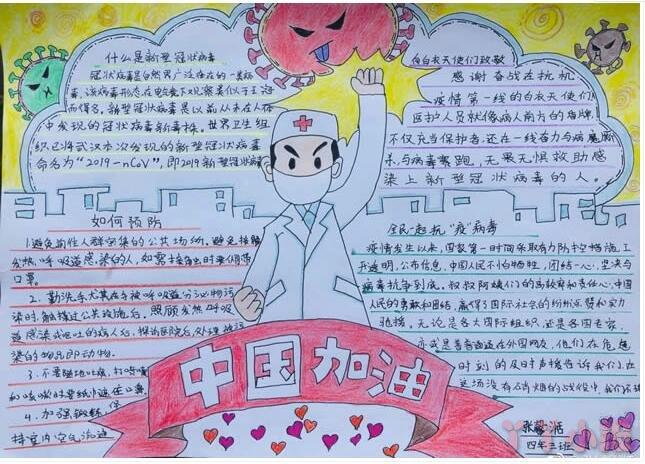 什么是新型冠状病毒
冠状病毒是自然界广泛存在的一类病
毒,该病毒形态在
而得名。新型冠状病毒是以前从未在人体
中发现的冠状病毒新毒株。世界卫生组
织已将武汉本次发现的新型冠状病毒
命名为"2019-nCoV",即2019新型冠状病毒
向白衣天使们致敬
感谢奋战在抗机
疫情第一线的白衣天使们,
医护人员就像病人前方的盾牌
不仅充当保护者,还在一线奋力与病魔厮
杀,与病毒赛跑,无畏无惧救助感
染上新型冠状病毒的人。
如何预防
1.避免前往人群密集的公共场所。避免接触
发热呼吸道感染的人,如需接触时要佩戴
口罩。
2.勤洗手尤其在手被呼吸道分泌物污
染时、触摸过公共设施后、照顾发热呼吸
道感染或呕吐的病人后、探访医院后、处理被污
染的物品即动物
3.不要随地吐痰,打喷嚏
和咳嗽时要纸巾遮住口鼻
4.加强锻炼,保
持室内空气流通
全民一起抗"疫"病毒
疫情发生以来,国家第一时间采取有力防控措施,工
开透明,公布信息,中国人民不怕牺牲,团结一心,坚决与
病毒抗争到底。叔叔阿姨们的高效率和责任心,中国
人民的勇敢和团结,赢得了国际社会的纷纷点赞和实力
驰援。无论是各大国际组织,还是各国专家,
亦或是普普通通在外国网友,他们在危难
时刻的及时声援告诉我们,在
这场没有硝烟的战役中,我们不孤
中国加油
四年三班